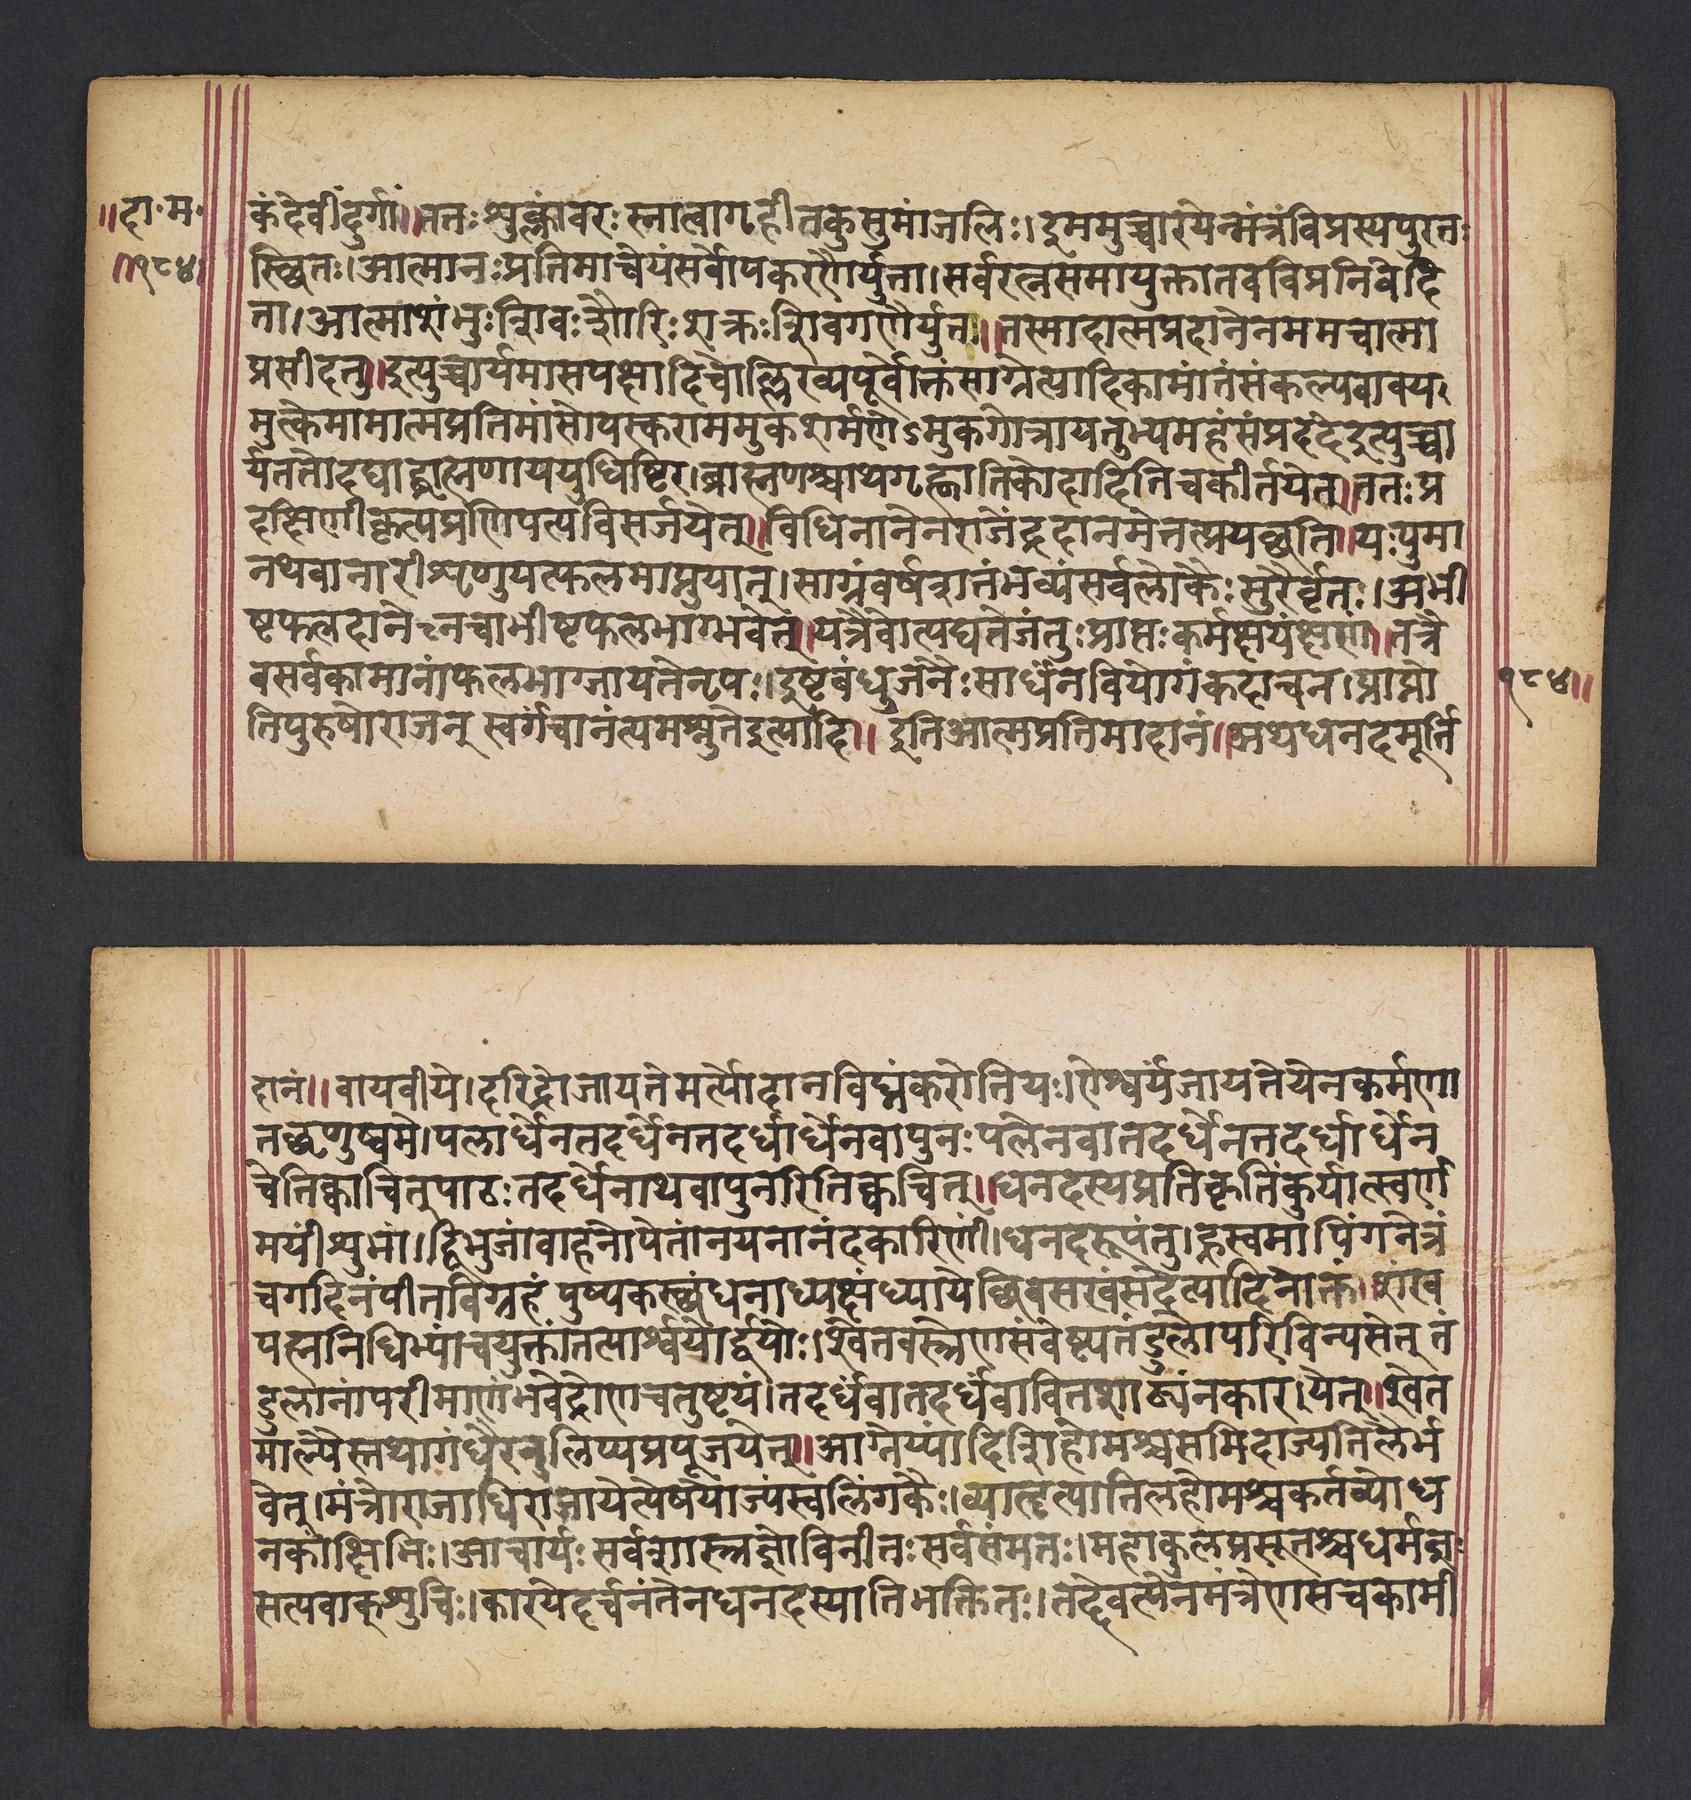 ॥दा॰म॰
॥१८४॥
कंदेवींदुर्गां॥ततःशुक्लांबरःस्नात्वागृहीतकुसुमांजलिः।इममुच्चारयेन्मंत्रंविप्रस्यपुरतः
स्थितः।आत्मानःप्रतिमाचेयंसर्वोपकरणैर्युता।सर्वरत्नसमायुक्तातवविप्रनिवेदि
ता।आत्माशंभुःशिवःशौरिःशक्रःशिवगणैर्युतः॥तस्मादात्मप्रदानेनममचात्मा
प्रसीदतु॥इत्युच्चार्यमासपक्षादिचोल्लिख्यपूर्वोक्तंसाग्नेत्यादिकामांतंसंकल्पवाक्य
मुत्केमामात्मप्रतिमांसोपस्कराममुकशर्मणेऽमुकगोत्रायतुभ्यमहंसंप्रददेइत्युच्चा
र्यततोदद्याद्ब्राह्मणाययुधिष्टिर।ब्राह्मणश्चाथगृह्णातिकोदादितिचकीर्तयेत्॥ततःप्र
दक्षिणीकृत्यप्रणिपत्यविसर्जयेत्॥विधिनानेनराजेंद्रदानमेतत्प्रयच्छति॥यःपुमा
नथवानारीशृणुयत्फलमाप्नुयात्।साग्रंवर्षशतंभव्यंसर्वलोकैःसुरैर्वृतः।अभी
ष्टफलदानेनचाभीष्टफलभाग्भवेत्॥यत्रैवोत्पद्यतेजंतुःप्राप्तःकर्मक्षयंक्षणा॥तत्रै
वसर्वकामानांफलभाग्जायतेनृप।इष्टबंधुजनैःसार्धंनवियोगंकदाचन।प्राप्नो
१८४॥
तिपुरुषोराजन्स्वर्गंचानंत्यमश्नुतेइत्यादि॥इतिआत्मप्रतिमादानं॥अथधनदमूर्ति
दानं॥वायवीये।दरिद्रोजायतेमर्त्योदानविघ्नंकरोतियः।ऐश्वर्यंजायतेयेनकर्मणा
तच्छृणुष्वमे।पलार्धेनतदर्धेनतदर्धार्धेनवापुनःपलेनवातदर्धेनतदर्धार्धेन
चेतिक्वाचित्पाठःतदर्धेनाथवापुनरितिक्वचित्॥धनदस्यप्रतिकृतिंकुर्यात्स्वर्ण
मयींशुभां।द्विभुजांवाहनोपेतांनयनानंदकारिणीं।धनदरूपंतु।ह्रस्वमापिंगनेत्रं
चगदिनंपीतविग्रहंपुष्पकस्थंधनाध्यक्षंध्यायेच्छिवसखंसदेत्यादिनोक्तं॥शंख
पद्मनिधिभ्यांचयुक्तांतत्पार्श्वयोर्द्वयोः।श्वेतवस्त्रेणसंवेष्ट्यतंडुलोपरिविन्यसेत्तं
डुलानांपरीमाणंभवेद्रोणचतुष्टयं।तदर्धंवातदर्धंवावित्तशाठ्यंनकारयेत्॥श्वेत
माल्यैस्तथागंधैरनुलिप्यप्रपूजयेत्॥आग्नेय्यांदिशिहोमश्चसमिदाज्यतिलैर्भ
वेत्।मंत्रोराजाधिराजायेत्येषयाज्यंस्वलिंगकैः।व्याहृत्यातिलहोमश्चकर्तव्योध
नकांक्षिभिः।आचार्यःसर्वशास्त्रज्ञोविनीतःसर्वसंमतः।महाकुलप्रसूतश्चधर्मज्ञः
सत्यवाक्शुचिः।कारयेदर्चनंतेनधनदस्यातिभक्तितः।तद्दैवत्येनमंत्रेणसचकामी